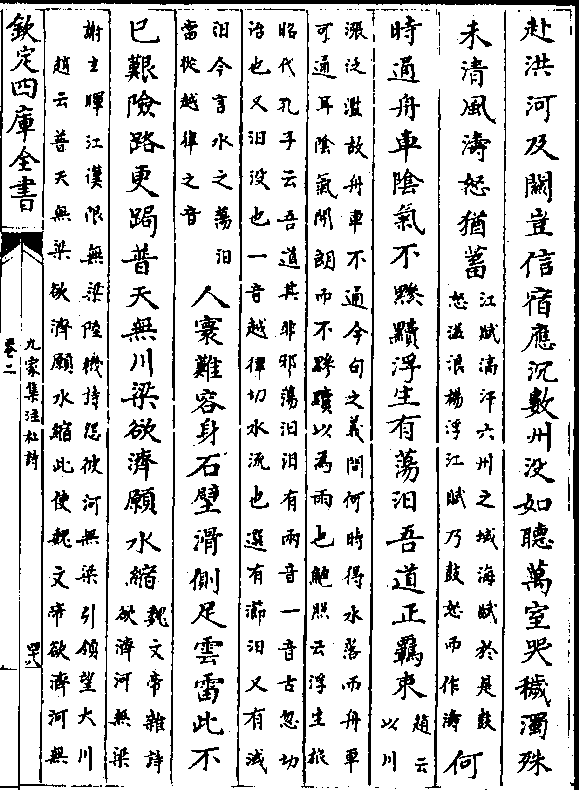 赴洪河及關豈信宿應沉數州没如聽萬室哭穢濁殊
未清風濤怒猶蓄
江賦滈汗六州之域海賦於是鼓
怒溢浪楊浮江賦乃鼓怒而作濤
何
時通舟車陰氣不黲黷浮生有蕩汨吾道正羈束
趙云
以川
漲泛濫故舟車不通今句之義問何時得水落而舟車
可通耳陰氣開朗而不黲黷以為雨也鮑照云浮生旅
昭代孔子云吾道其非邪蕩汨汨有兩音一音古忽切
治也又汨没也一音越律切水流也選有瀄汨又有減
汨今言水之蕩汨
當從越律之音
人寰難容身石壁滑側足雲雷此不
已艱險路更跼普天無川梁欲濟願水縮
魏文帝雜詩
欲濟河無梁
謝玄暉江漢限無梁陸機詩怨彼河無梁引領望大川
趙云普天無梁欲濟願水縮此使魏文帝欲濟河無
欽定四庫全書
九家集注杜詩
卷二
四八